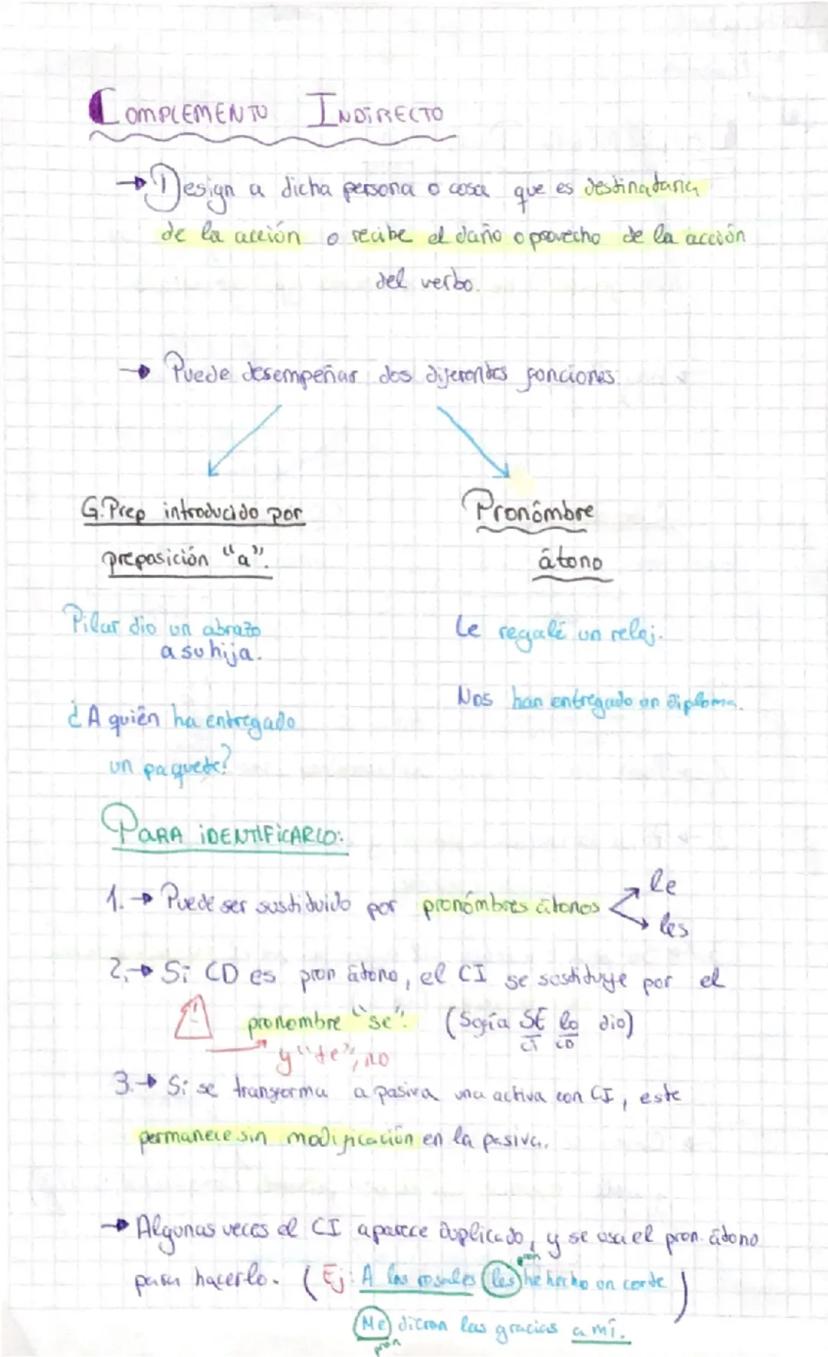 COMPLEMENTO INDIRECTO
→ Design a dicha persona o cosa que es destinataria
de la acción o recibe el daño o provecho de la acción
del verbo.
→ Puede desempeñar dos diferentes funciones
G.Prep introducido por
preposición "a".
Pilar dio un abrazo
a su hija.
¿A quién ha entregado
un paquete?
Pronómbre
átono
Le regalé un reloj.
Nos han entregado un diploma.
PARA iDENTIFICARLO:
1.→ Puede ser sustiduido por pronómbres átonos
le
les
2.→ Si CD es pron átono, el CI se sustiduye por el
! pronombre "se". (Sofía SE lo dio)
CI CD
y "te", no
3.→ Si se transforma a pasiva una activa con CI, este
permanece sin modificación en la pasiva.
→ Algunas veces el CI aparece duplicado, y se usa el pron. átono
para hacerlo. (Ej: A los rosales les he hecho un corte)
pron
Me dieron las gracias a mí.
pron